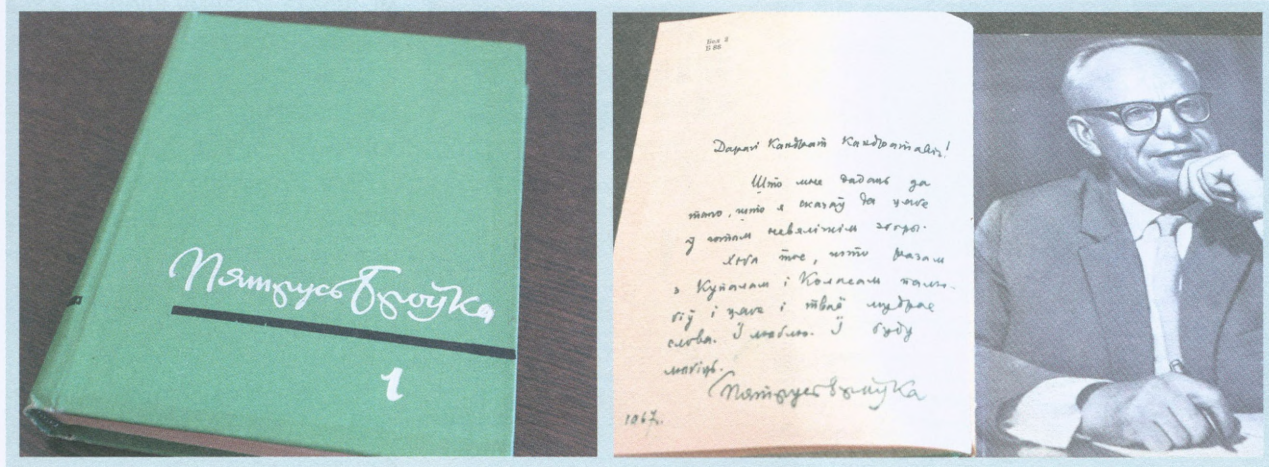 Пятрусь Броўка
1
Бел 2
Б 88
Дарагі Кандрат Кандратавіч!
Што мне дадаць да
таго, што я сказаў да цябе
ў гэтым невялікім зборы.
Хіба тое, што разам
з Купалам і Коласам палю-
біў і цябе і тваё мудрае
слова. І люблю. І буду
любіць.
Пятрусь Броўка
1967г.